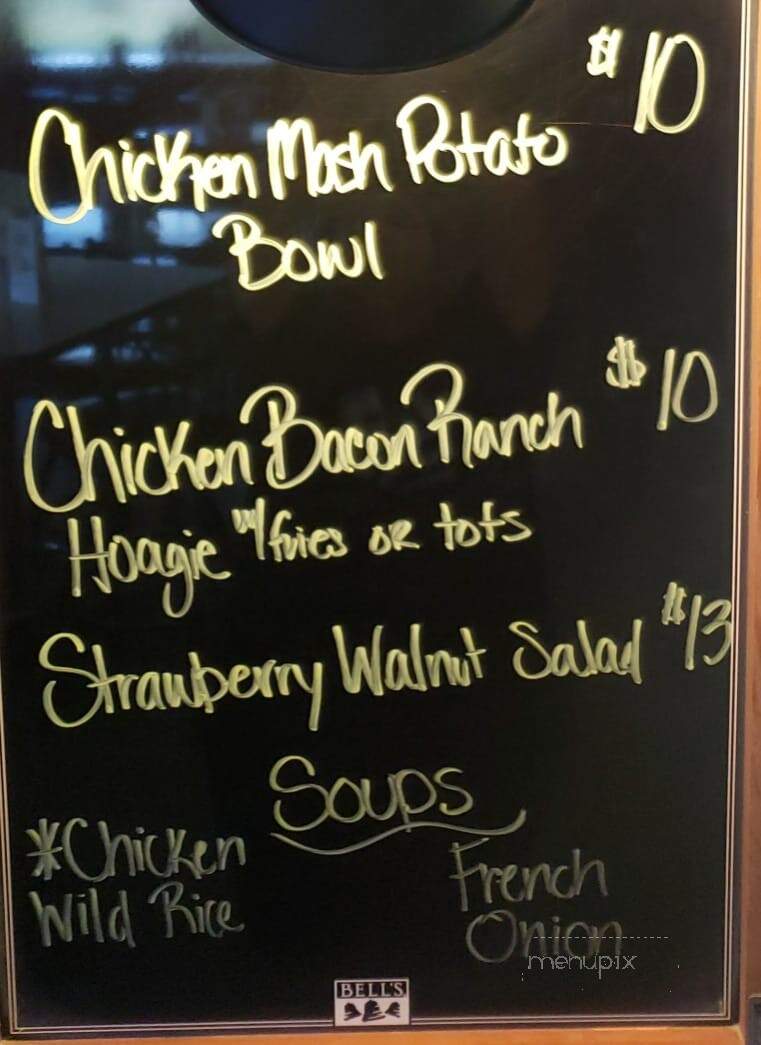 $10
Chicken Mash Potato
Bowl
$10
Chicken Bacon Ranch
Hoagie w/fries OR tots
Strawberry Walnut Salad $13
Soups
*Chicken
Wild Rice
French
Onion
menupix
BELL'S